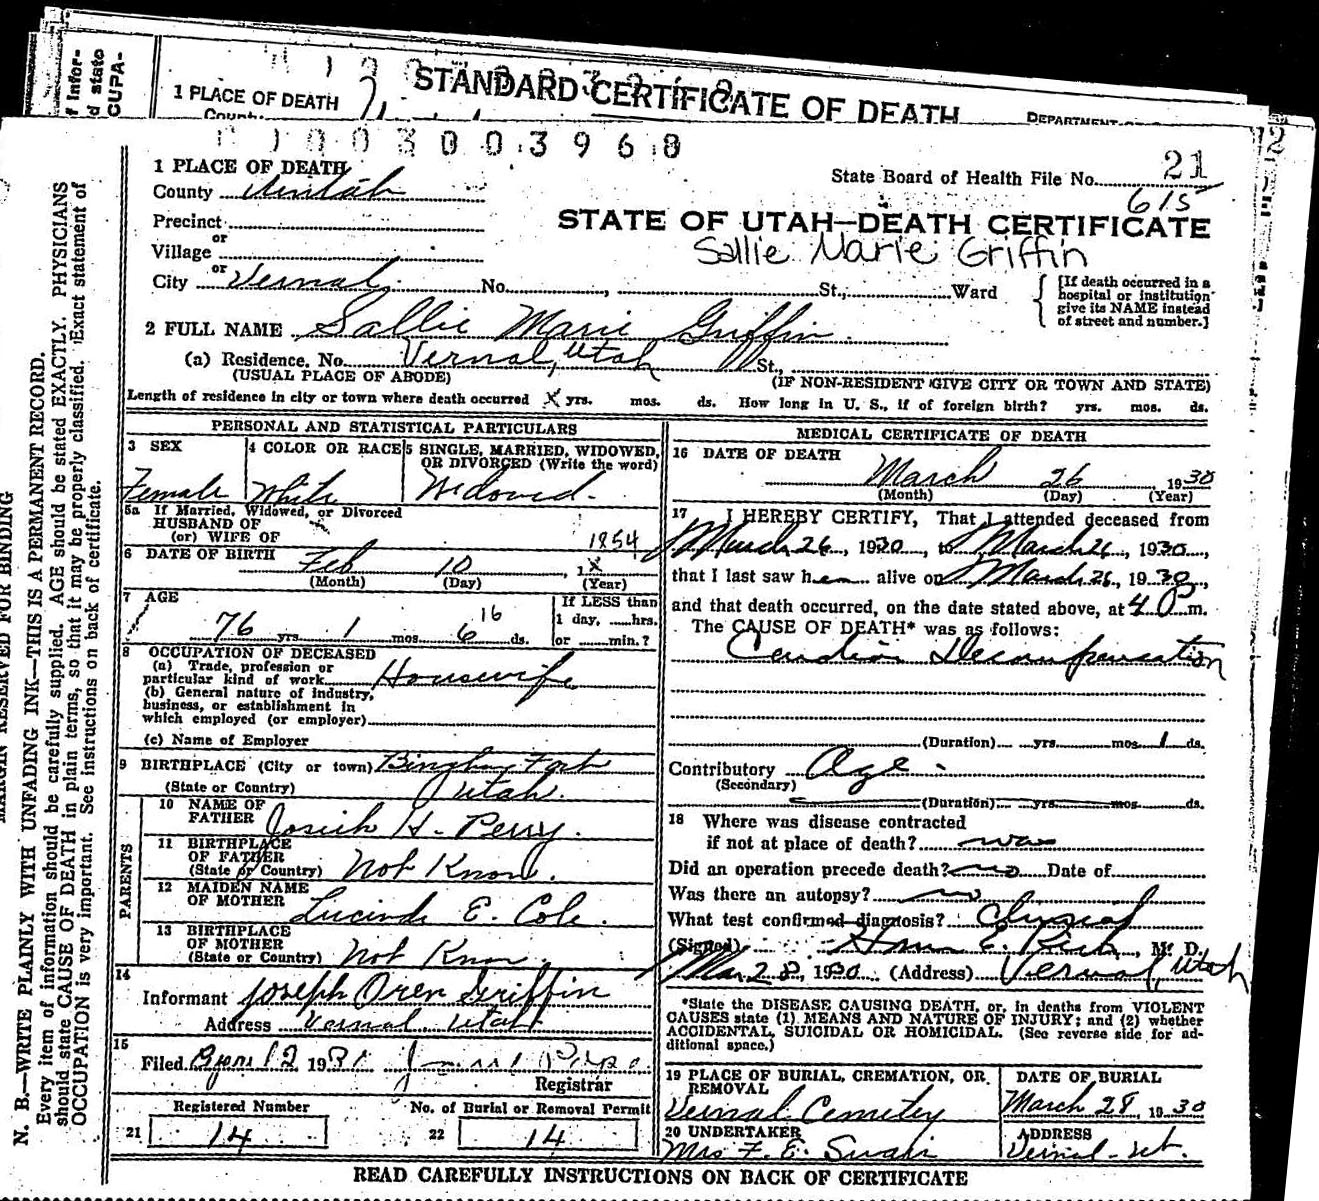 f Infor-
d state
CUPA-
STANDARD CERTIFICATE OF DEATH
1 PLACE OF DEATH
County
DEPARTMENT
0 0 3 0 0 3 9 6 8
1 PLACE OF DEATH
County Uintah
Precinct
or
Village
or
City Vernal. No. , St., Ward
State Board of Health File No. 21
615
STATE OF UTAH—DEATH CERTIFICATE
Sallie Marie Griffin
[If death occurred in a
hospital or institution
give its NAME instead
of street and number.]
2 FULL NAME Sallie Marie Griffin
(a) Residence. No. Vernal, Utah St.,
(USUAL PLACE OF ABODE) (IF NON-RESIDENT GIVE CITY OR TOWN AND STATE)
Length of residence in city or town where death occurred X yrs. mos. ds. How long in U. S., if of foreign birth? yrs. mos. ds.
PERSONAL AND STATISTICAL PARTICULARS
3 SEX
Female
4 COLOR OR RACE
White
5 SINGLE, MARRIED, WIDOWED,
OR DIVORCED (Write the word)
Widowed.
5a If Married, Widowed, or Divorced
HUSBAND OF
(or) WIFE OF
6 DATE OF BIRTH 1854
Feb 10, 1 X
(Month) (Day) (Year)
7 AGE
76 yrs. 1 mos. 6 16 ds.
If LESS than
1 day, hrs.
or min.?
8 OCCUPATION OF DECEASED
(a) Trade, profession or
particular kind of work Housewife
(b) General nature of industry,
business, or establishment in
which employed (or employer)
(c) Name of Employer
9 BIRTHPLACE (City or town) Bingham Fort
(State or Country) Utah.
PARENTS
10 NAME OF
FATHER Josiah H. Perry.
11 BIRTHPLACE
OF FATHER
(State or Country) Not Know.
12 MAIDEN NAME
OF MOTHER Lucinda E. Cole.
13 BIRTHPLACE
OF MOTHER
(State or Country) Not Know.
14
Informant Joseph Oren Griffin
Address Vernal Utah
15
Filed 12 1930
Registrar
Registered Number
21 14
No. of Burial or Removal Permit
22 14
MEDICAL CERTIFICATE OF DEATH
16 DATE OF DEATH
March 26 1930
(Month) (Day) (Year)
17 I HEREBY CERTIFY, That I attended deceased from
March 26, 1930, to March 26, 1930,
that I last saw her alive on March 26, 1930,
and that death occurred, on the date stated above, at 4 P m.
The CAUSE OF DEATH* was as follows:
Cardiac Decompensation
(Duration) yrs. mos. 1 ds.
Contributory Age.
(Secondary)
(Duration) yrs. mos. ds.
18 Where was disease contracted
if not at place of death?
Did an operation precede death? no Date of
Was there an autopsy? no
What test confirmed diagnosis? Clinical
(Signed) E. Rich, M. D.
Mar 28, 1930 (Address) Vernal, Utah
*State the DISEASE CAUSING DEATH, or, in deaths from VIOLENT
CAUSES state (1) MEANS AND NATURE OF INJURY; and (2) whether
ACCIDENTAL, SUICIDAL OR HOMICIDAL. (See reverse side for ad-
ditional space.)
19 PLACE OF BURIAL, CREMATION, OR
REMOVAL
Vernal Cemetery
DATE OF BURIAL
March 28, 1930
20 UNDERTAKER
Mrs F. E. Swain
ADDRESS
Vernal - Ut.
READ CAREFULLY INSTRUCTIONS ON BACK OF CERTIFICATE
MARGIN RESERVED FOR BINDING
N. B.—WRITE PLAINLY WITH UNFADING INK—THIS IS A PERMANENT RECORD.
Every item of information should be carefully supplied. AGE should be stated EXACTLY. PHYSICIANS
should state CAUSE OF DEATH in plain terms, so that it may be properly classified. Exact statement of
OCCUPATION is very important. See instructions on back of certificate.